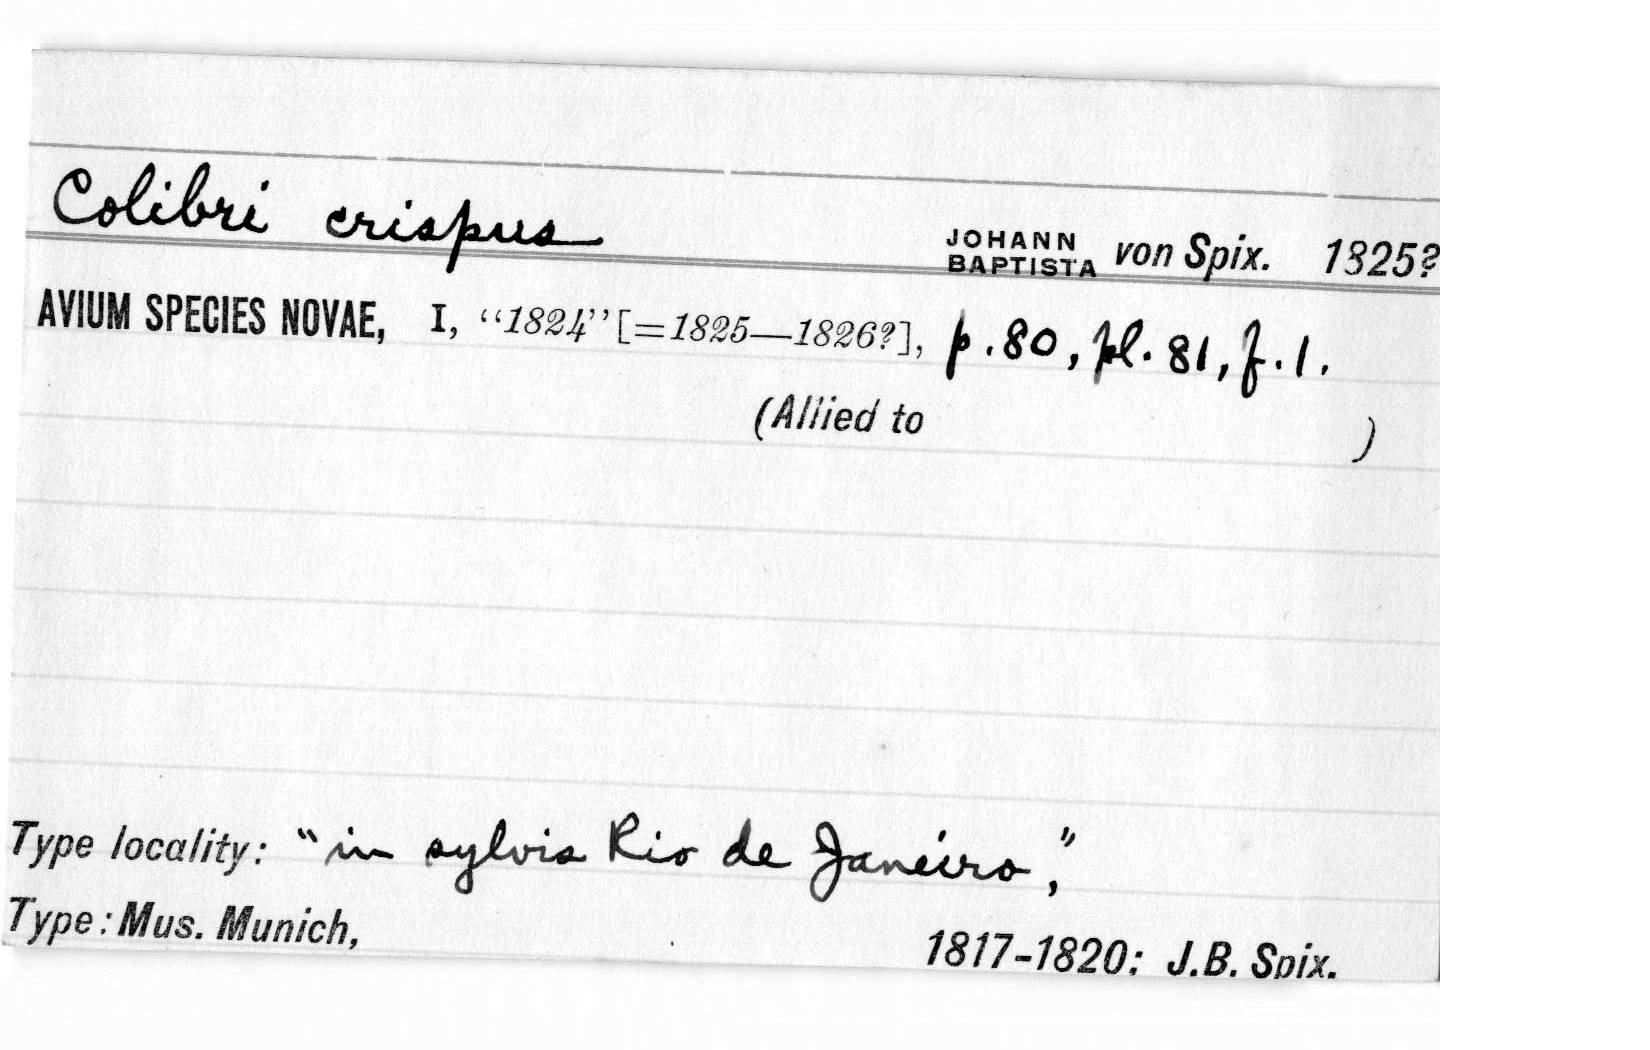 Colibri crispus JOHANN BAPTISTA von Spix. 1825?
AVIUM SPECIES NOVAE, I, “1824” [=1825—1826?], p. 80, pl. 81, f. 1.
(Allied to )
Type locality: “in sylvis Rio de Janeiro,”
Type: Mus. Munich, 1817-1820: J.B. Spix.